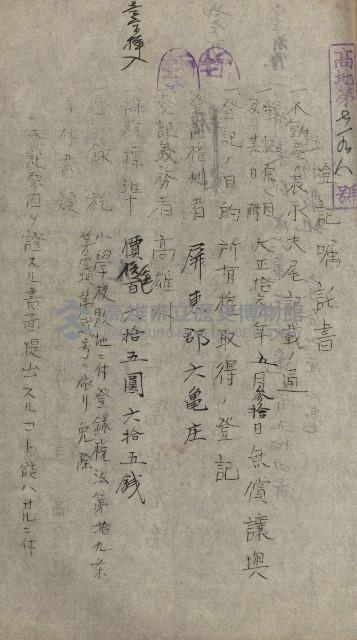 高地第七一九八號
壱字挿入
登記嘱託書
一不動産ノ表示 末尾記載ノ通
一登記原因及其日附 大正拾参年五月参拾日無償讓與
一登記ノ目的 所有権取得ノ登記
登記権利者 屏東郡六亀庄
登記義務者 高雄
課税標準 價格 拾五圓六拾五錢
登録税 ハ學校敷地ニ付登錄税法第拾九条
第 號ニ依リ免除
附属書類
一登記原因ヲ證スル書面提出スルコト能ハサルニ付
高雄市立歷史博物館